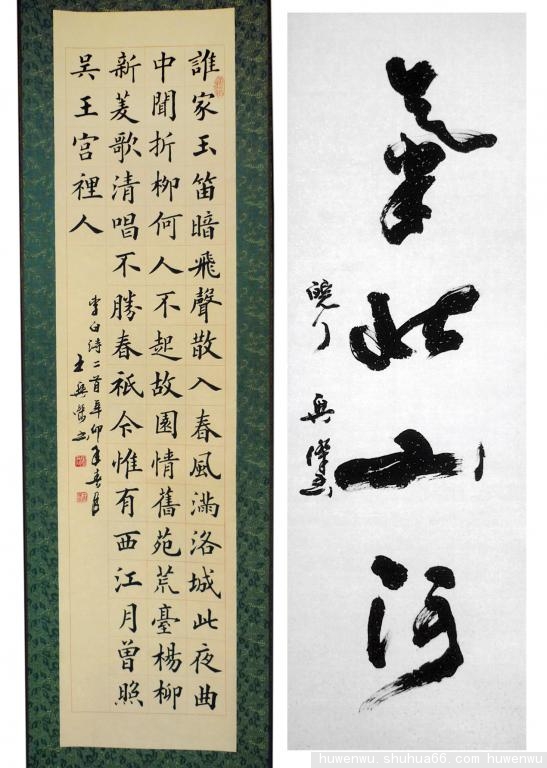 誰家玉笛暗飛聲散入春風滿洛城此夜曲
中聞折柳何人不起故園情舊苑荒臺楊柳
新菱歌清唱不勝春祇今惟有西江月曾照
吴王宫裡人
李白詩二首辛卯年春月
氣壮山河
huwenwu. shuhua66. com huwenwu